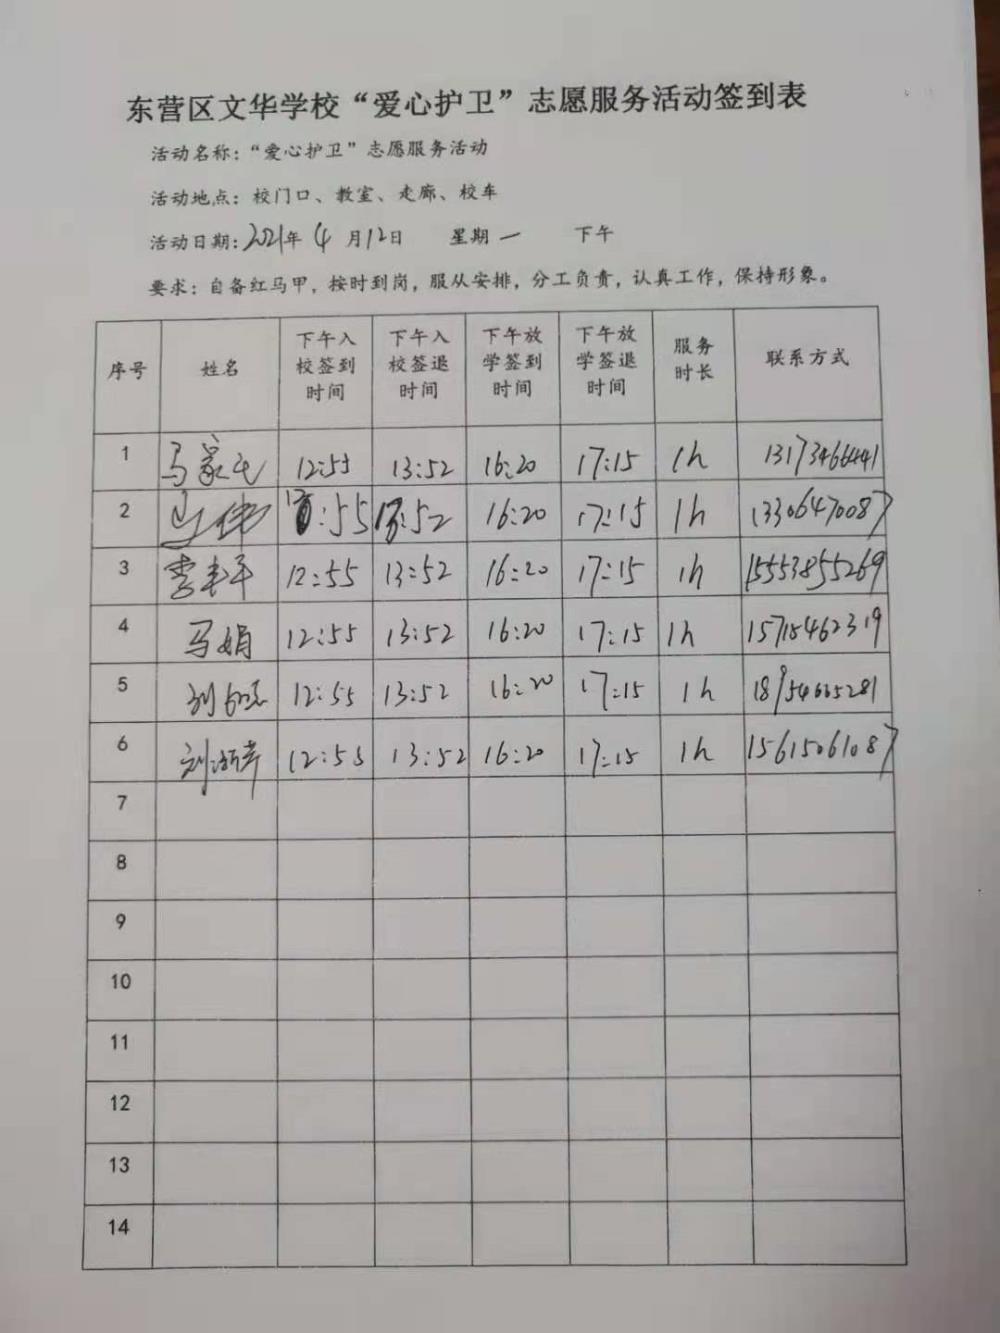 东营区文华学校“爱心护卫”志愿服务活动签到表
活动名称：“爱心护卫”志愿服务活动
活动地点：校门口、教室、走廊、校车
活动日期：2021年 4 月12日 星期一 下午
要求：自备红马甲，按时到岗，服从安排，分工负责，认真工作，保持形象。
序号 姓名 下午入校签到时间 下午入校签退时间 下午放学签到时间 下午放学签退时间 服务时长 联系方式
1 12:55 13:52 16:20 17:15 1h 13173466441
2 12:55 13:52 16:20 17:15 1h 13306470087
3 12:55 13:52 16:20 17:15 1h 15553855269
4 马娟 12:55 13:52 16:20 17:15 1h 15715462319
5 12:55 13:52 16:20 17:15 1h 18954665281
6 12:55 13:52 16:20 17:15 1h 15615061087
7
8
9
10
11
12
13
14